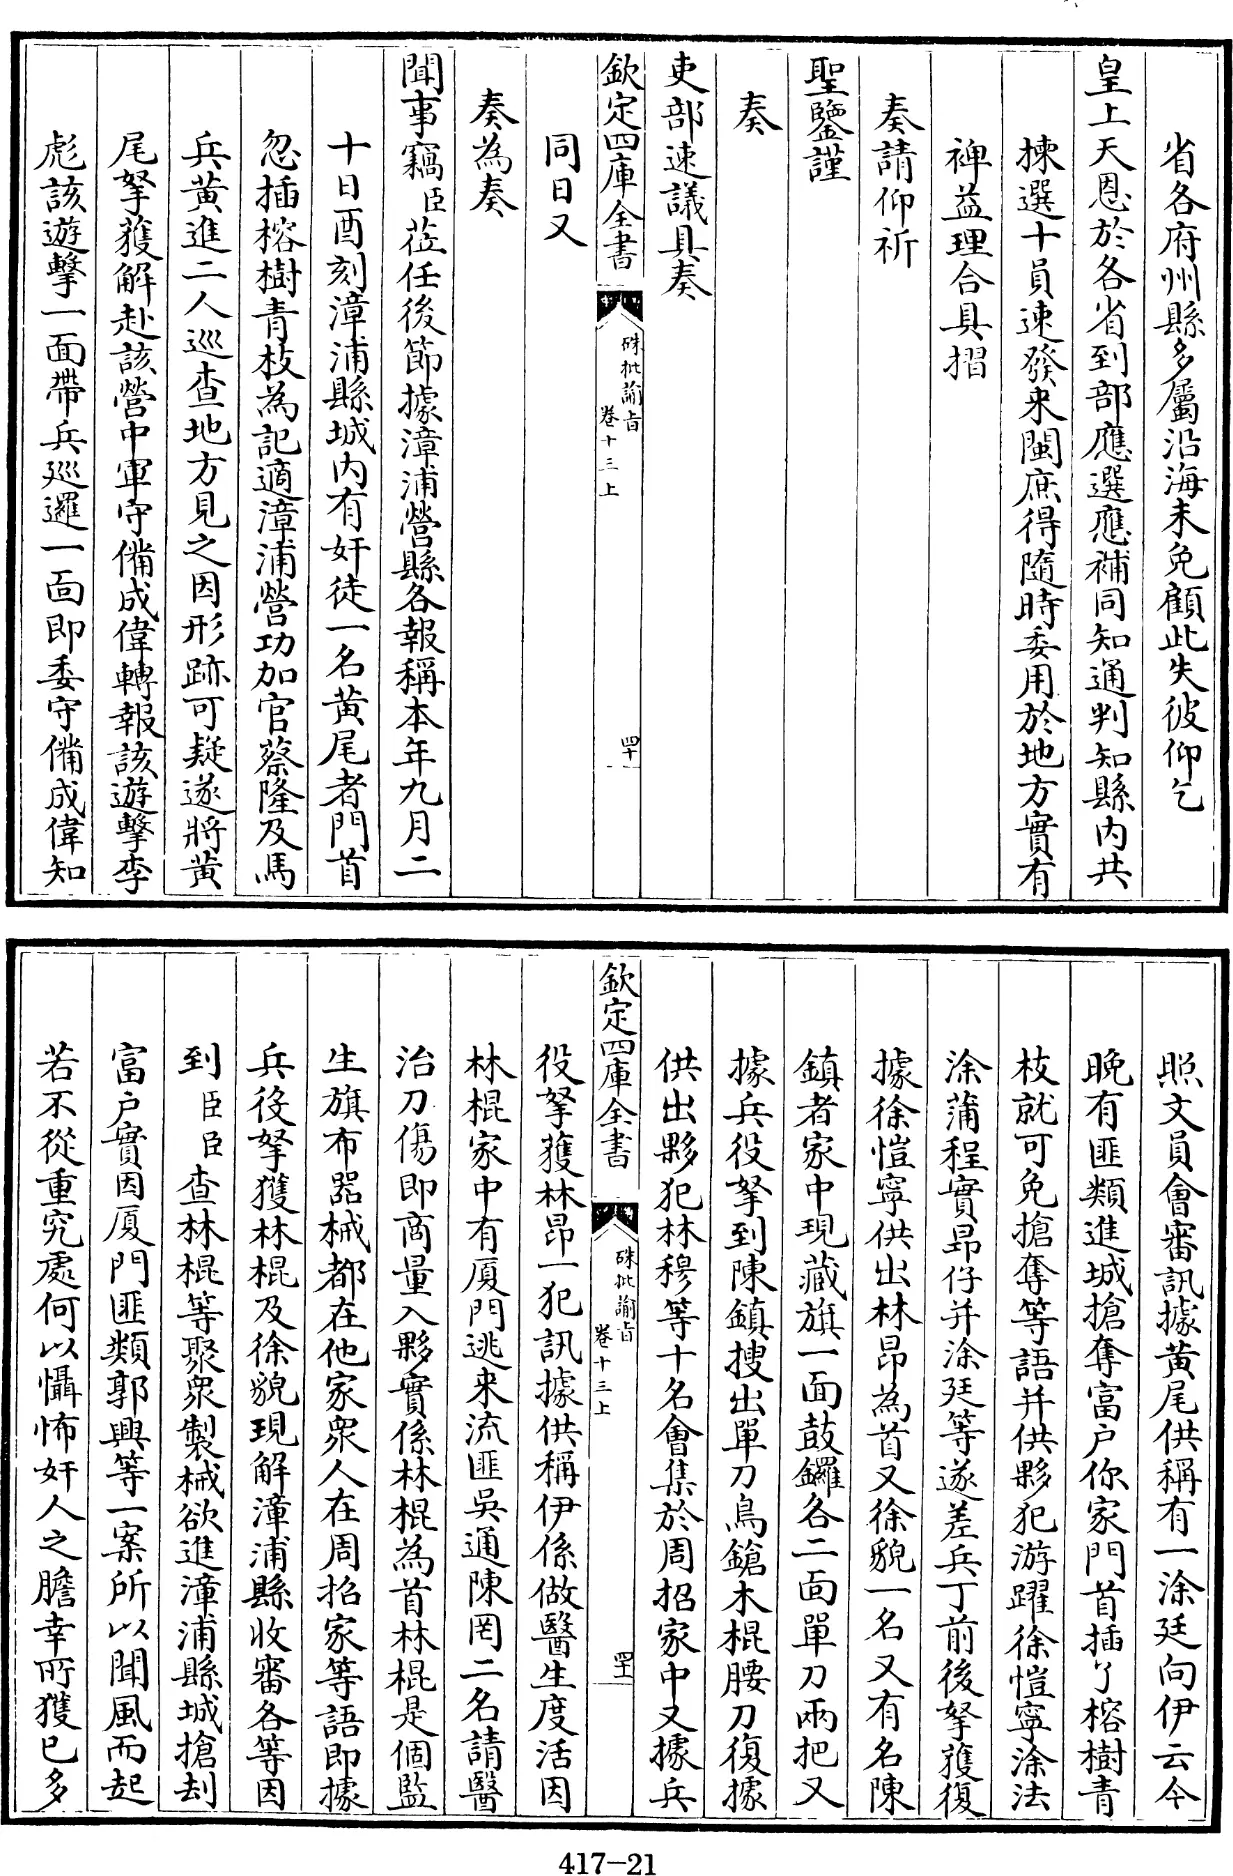 省各府州縣多屬沿海未免顧此失彼仰乞
皇上天恩於各省到部應選應補同知通判知縣內共
揀選十員速發来閩庶得隨時委用於地方實有
裨益理合具摺
奏請仰祈
聖鑒謹
奏
吏部速議具奏
欽定四庫全書
硃批諭旨
卷十三上
四十
同日又
奏為奏
聞事竊臣蒞任後節據漳浦營縣各報稱本年九月二
十日酉刻漳浦縣城內有奸徒一名黃尾者門首
忽插榕樹青枝為記適漳浦營功加官蔡隆及馬
兵黃進二人巡查地方見之因形跡可疑遂將黃
尾拏獲解赴該營中軍守備成偉轉報該遊擊李
彪該遊擊一面帶兵巡邏一面即委守備成偉知
照文員會審訊據黃尾供稱有一涂廷向伊云今
晚有匪類進城搶奪富户你家門首插了榕樹青
枝就可免搶奪等語并供夥犯游躍徐愷寧涂法
涂蒲程實昴仔并涂廷等遂差兵丁前後拏獲復
據徐愷寧供出林昂為首又徐貌一名又有名陳
鎮者家中現藏旗一面鼓鑼各二面單刀兩把又
據兵役拏到陳鎮搜出單刀鳥鎗木棍腰刀復據
供出夥犯林穆等十名會集於周招家中又據兵
欽定四庫全書
硃批諭旨
卷十三上
四十一
役拏獲林昂一犯訊據供稱伊係做醫生度活因
林棍家中有厦門逃来流匪吳通陳罔二名請醫
治刀傷即商量入夥實係林棍為首林棍是個監
生旗布器械都在他家衆人在周招家等語即據
兵役拏獲林棍及徐貌現解漳浦縣收審各等因
到臣臣查林棍等聚衆製械欲進漳浦縣城搶刦
富户實因厦門匪類郭興等一案所以聞風而起
若不從重究處何以懾怖奸人之膽幸所獲已多
417-21